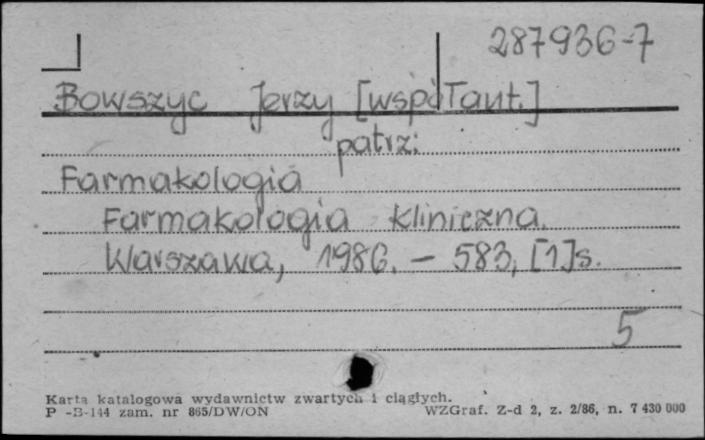 287936-7
Bowszyc Jerzy [współaut.]
patrz:
Farmakologia
Farmakologia kliniczna.
Warszawa, 1986. – 583, [1]s.
5
Karta katalogowa wydawnictw zwartych i ciągłych.
P -B-144 zam. nr 865/DW/ON WZGraf. Z-d 2, z. 2/86, n. 7 430 000